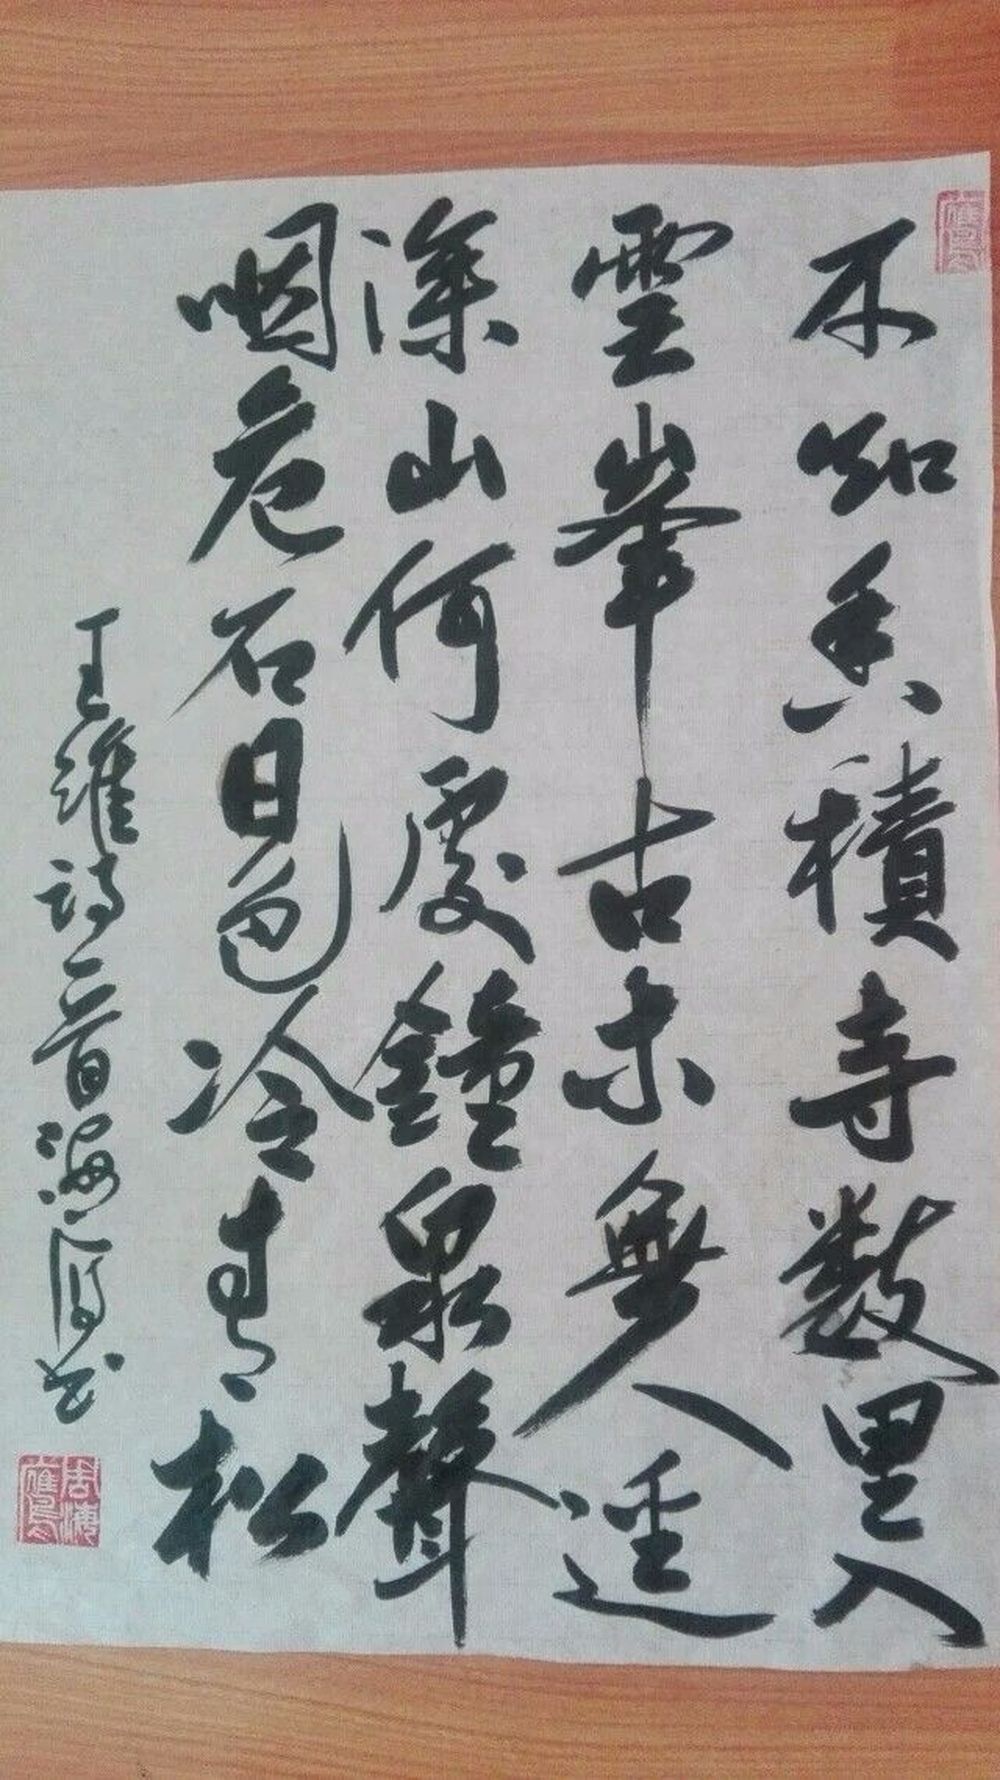 不知香積寺数里入
雲峯古木無人逕
深山何處鐘泉聲
咽危石日色冷青松
王維詩一首海鷹书
周海鷹